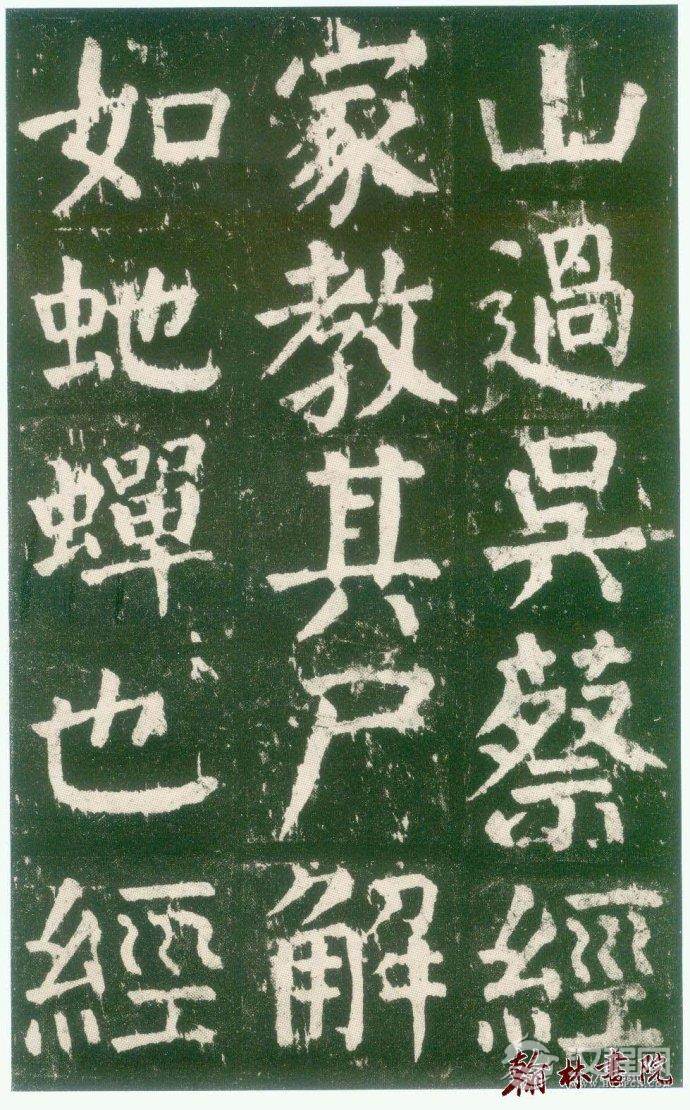 山過吳蔡經
家教其尸解
如虵蟬也經
翰林書院